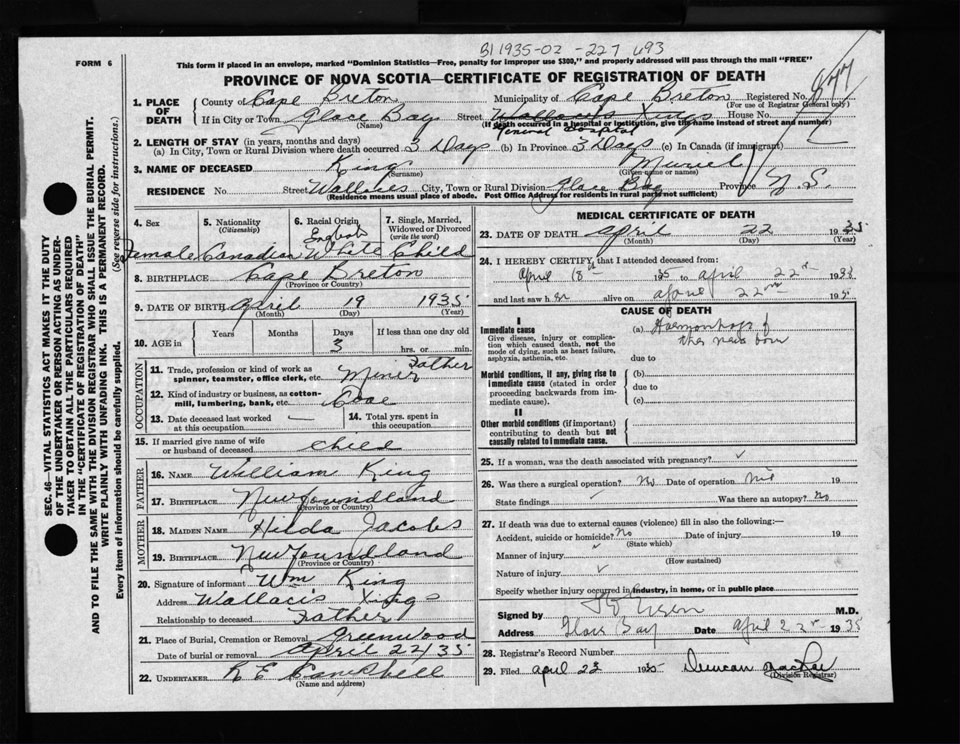 B1 1935-02-227 693
FORM 6
This form if placed in an envelope, marked "Dominion Statistics—Free, penalty for improper use $300," and properly addressed will pass through the mail "FREE"
PROVINCE OF NOVA SCOTIA—CERTIFICATE OF REGISTRATION OF DEATH
1. PLACE OF DEATH
County of Cape Breton Municipality of Cape Breton Registered No. 877
(For use of Registrar General only)
If in City or Town Glace Bay (Name) Street House No.
(If death occurred in a hospital or institution, give the name instead of street and number)
General Hospital
2. LENGTH OF STAY (in years, months and days)
(a) In City, Town or Rural Division where death occurred 3 Days (b) In Province 3 Days (c) In Canada (if immigrant)
3. NAME OF DECEASED King (Surname) Muriel (Given name or names)
RESIDENCE No Street City, Town or Rural Division Glace Bay Province N.S.
(Residence means usual place of abode. Post Office Address for residents in rural parts not sufficient)
4. Sex Female
5. Nationality (Citizenship) Canadian
6. Racial Origin English White
7. Single, Married, Widowed or Divorced (write the word) Child
8. BIRTHPLACE Cape Breton
(Province or Country)
9. DATE OF BIRTH April 19 1935
(Month) (Day) (Year)
10. AGE in Years Months Days 3 If less than one day old hrs. or min.
OCCUPATION
11. Trade, profession or kind of work as spinner, teamster, office clerk, etc. Miner Father
12. Kind of industry or business, as cotton-mill, lumbering, bank, etc. Coal
13. Date deceased last worked at this occupation
14. Total yrs. spent in this occupation
15. If married give name of wife or husband of deceased Child
FATHER
16. NAME William King
17. BIRTHPLACE Newfoundland
(Province or Country)
MOTHER
18. MAIDEN NAME Hilda Jacobs
19. BIRTHPLACE Newfoundland
(Province or Country)
20. Signature of informant Wm King
Address
Relationship to deceased Father
21. Place of Burial, Cremation or Removal Greenwood
Date of burial or removal April 22/35
22. UNDERTAKER R E Campbell
(Name and address)
MEDICAL CERTIFICATE OF DEATH
23. DATE OF DEATH April 22 1935
(Month) (Day) (Year)
24. I HEREBY CERTIFY that I attended deceased from:
April 18th 1935 to April 22nd 1935
and last saw her alive on April 22nd 193
CAUSE OF DEATH
I
Immediate cause
Give disease, injury or complication which caused death, not the mode of dying, such as heart failure, asphyxia, asthenia, etc.
(a) Haemorrhage of the new born
due to
Morbid conditions, if any, giving rise to immediate cause (stated in order proceeding backwards from immediate cause).
(b)
due to
(c)
II
Other morbid conditions (if important) contributing to death but not causally related to immediate cause.
25. If a woman, was the death associated with pregnancy?
26. Was there a surgical operation? No Date of operation 19
State findings Was there an autopsy? No
27. If death was due to external causes (violence) fill in also the following:—
Accident, suicide or homicide? No Date of injury 19
(State which)
Manner of injury
(How sustained)
Nature of injury
Specify whether injury occurred in Industry, in home, or in public place
Signed by M.D.
Address Glace Bay Date April 22nd 1935
28. Registrar's Record Number
29. Filed April 23 1935 Duncan
(Division Registrar)
SEC. 46—VITAL STATISTICS ACT MAKES IT THE DUTY
OF THE UNDERTAKER OR PERSON ACTING AS UNDER-
TAKER TO OBTAIN ALL THE PARTICULARS REQUIRED
IN THE "CERTIFICATE OF REGISTRATION OF DEATH"
AND TO FILE THE SAME WITH THE DIVISION REGISTRAR WHO SHALL ISSUE THE BURIAL PERMIT.
WRITE PLAINLY WITH UNFADING INK. THIS IS A PERMANENT RECORD.
Every item of information should be carefully supplied. (See reverse side for instructions.)